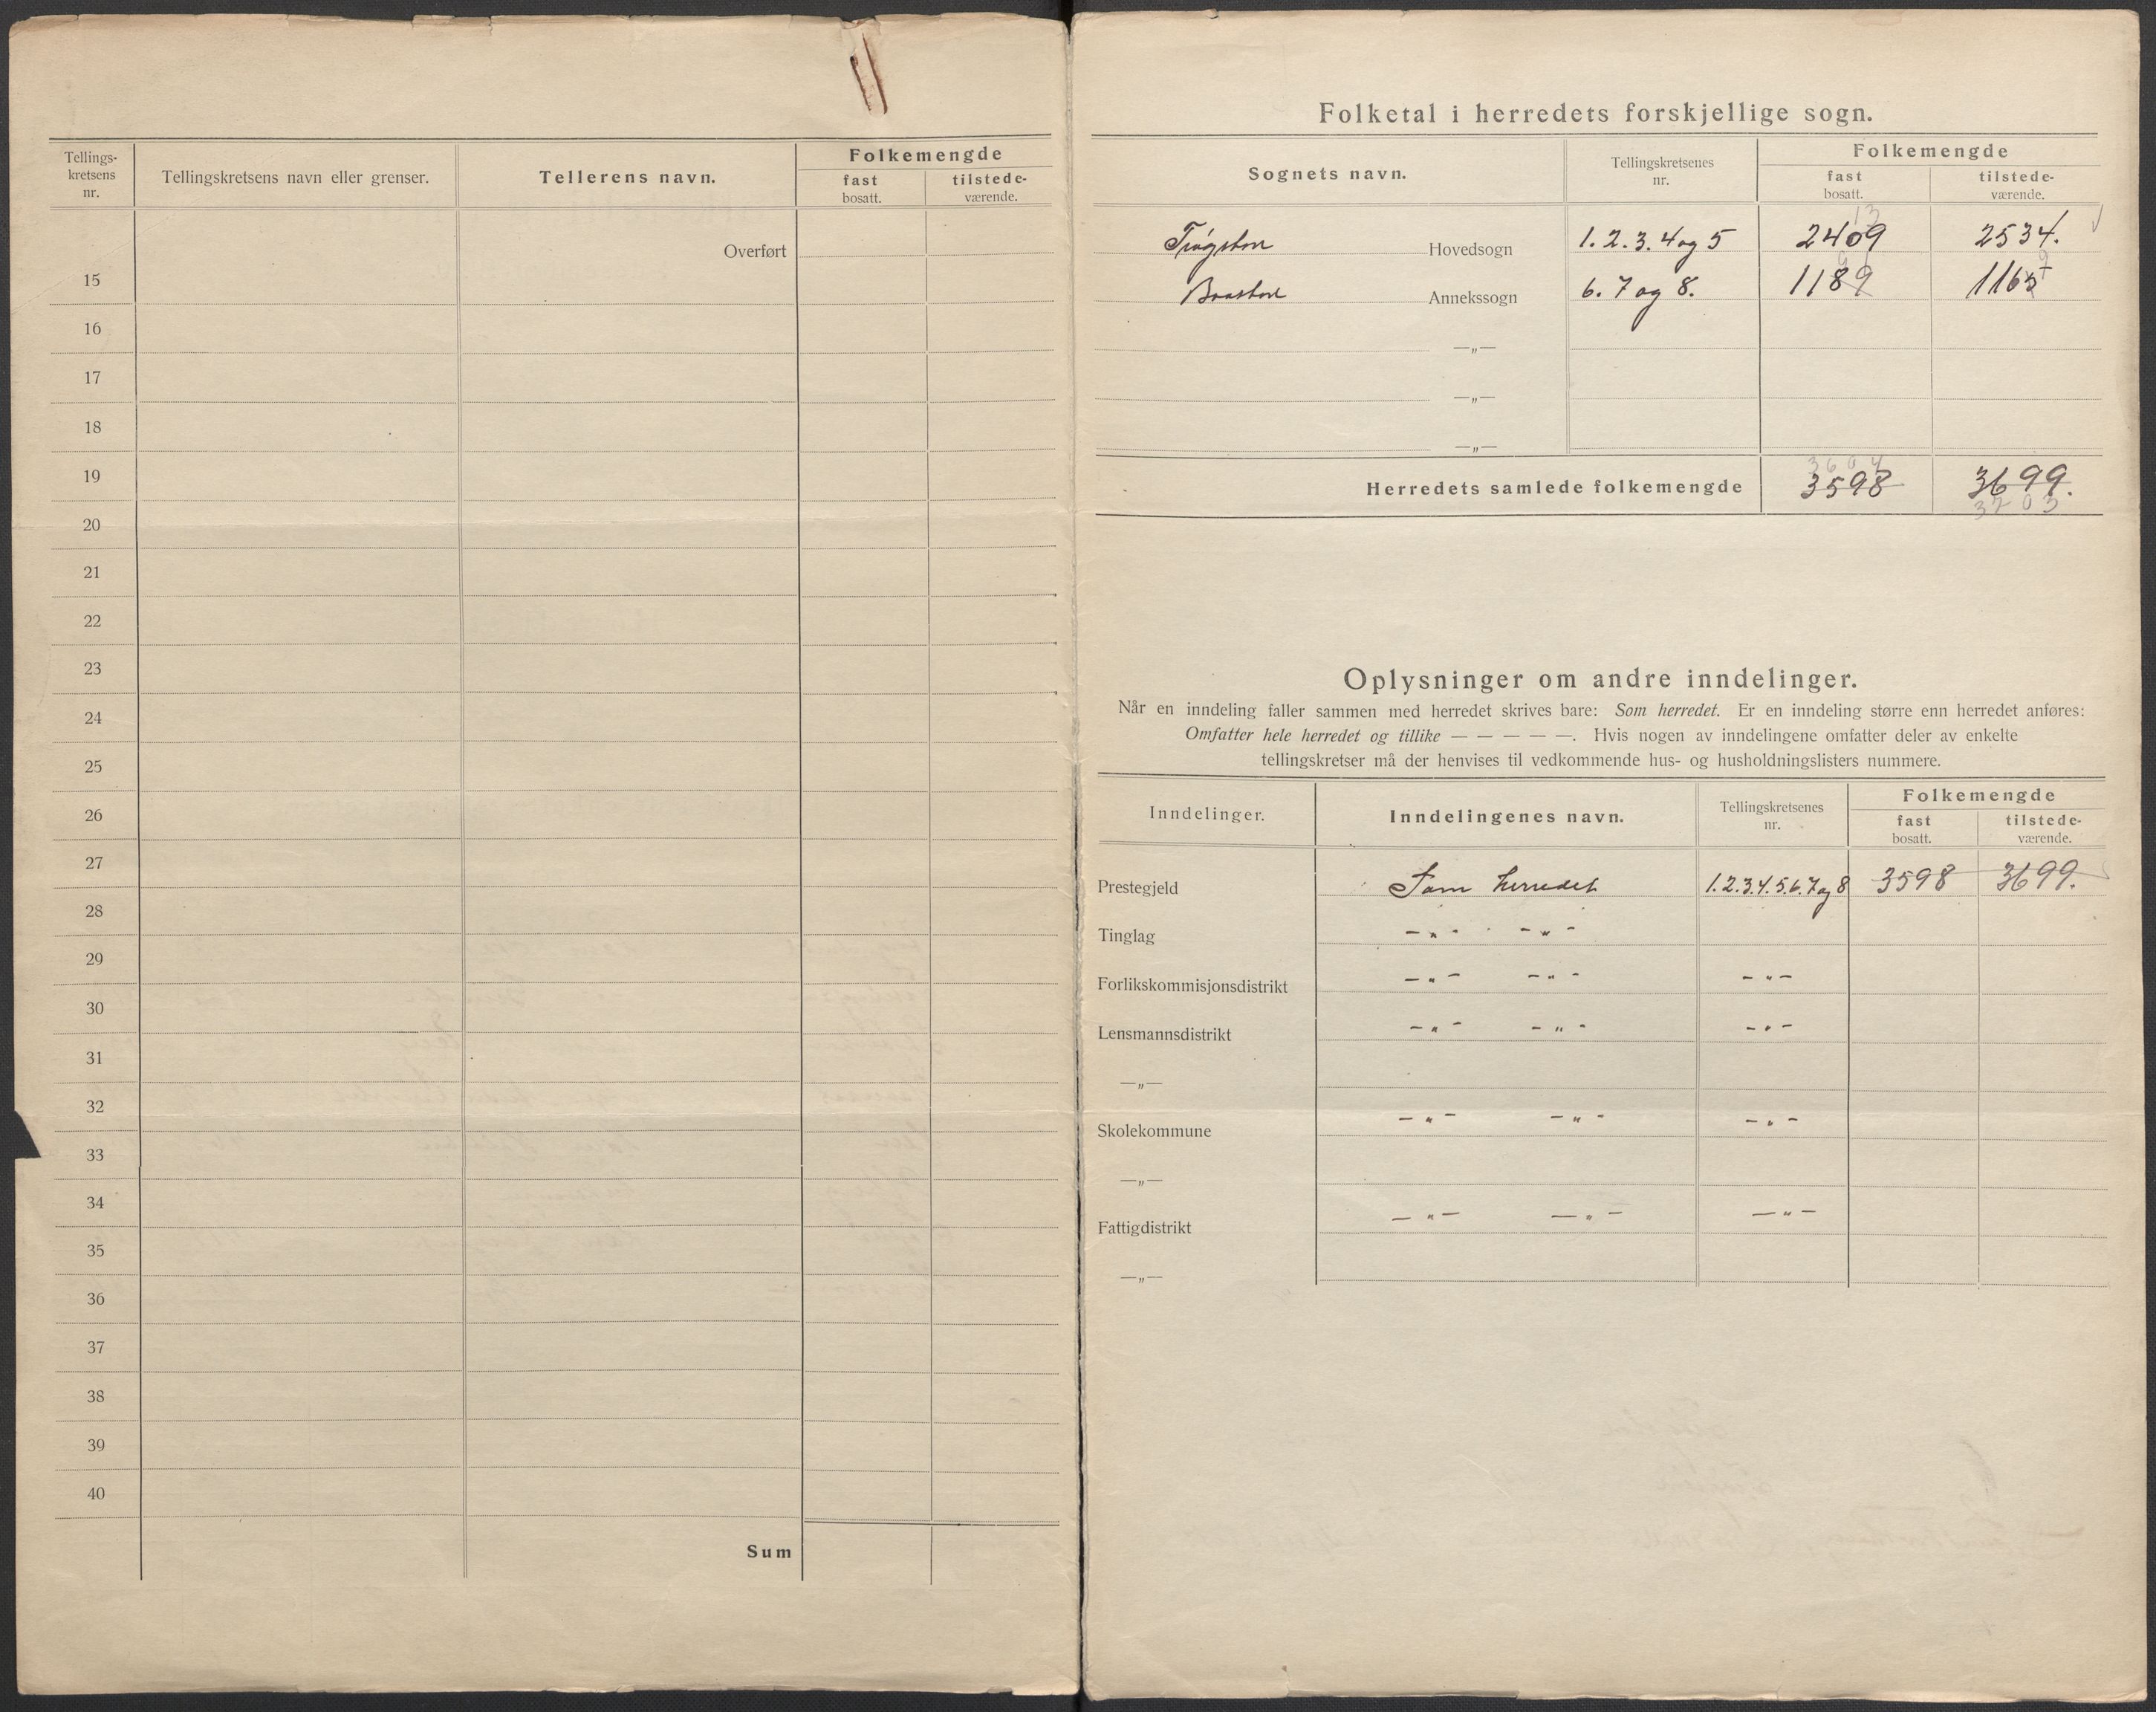 Tellings-
kretsens
nr.
Tellingskretsens navn eller grenser.
Tellerens navn.
Folkemengde
fast
bosatt.
tilstede-
værende.
Overført
15
16
17
18
19
20
21
22
23
24
25
26
27
28
29
30
31
32
33
34
35
36
37
38
39
40
Sum
Folketal i herredets forskjellige sogn.
Sognets navn.
Tellingskretsenes
nr.
Folkemengde
fast
bosatt.
tilstede-
værende.
13
Trøgstad Hovedsogn 1. 2. 3. 4 og 5 2409 2534.
Baastad Annekssogn 6. 7 og 8. 1189 1165
—„—
—„—
—„—
3604
Herredets samlede folkemengde 3598 3699.
3703
Oplysninger om andre inndelinger.
Når en inndeling faller sammen med herredet skrives bare: Som herredet. Er en inndeling større enn herredet anføres:
Omfatter hele herredet og tillike — — — — —. Hvis nogen av inndelingene omfatter deler av enkelte
tellingskretser må der henvises til vedkommende hus- og husholdningslisters nummere.
Inndelinger.
Inndelingenes navn.
Tellingskretsenes
nr.
Folkemengde
fast
bosatt.
tilstede-
værende.
Prestegjeld Som herredet 1.2.3.4.5.6.7 og 8 3598 3699.
Tinglag -„- -„-
Forlikskommisjonsdistrikt -„- -„- -„-
Lensmannsdistrikt -„- -„- -„-
—„—
Skolekommune -„- -„- -„-
—„—
Fattigdistrikt -„- -„- -„-
—„—